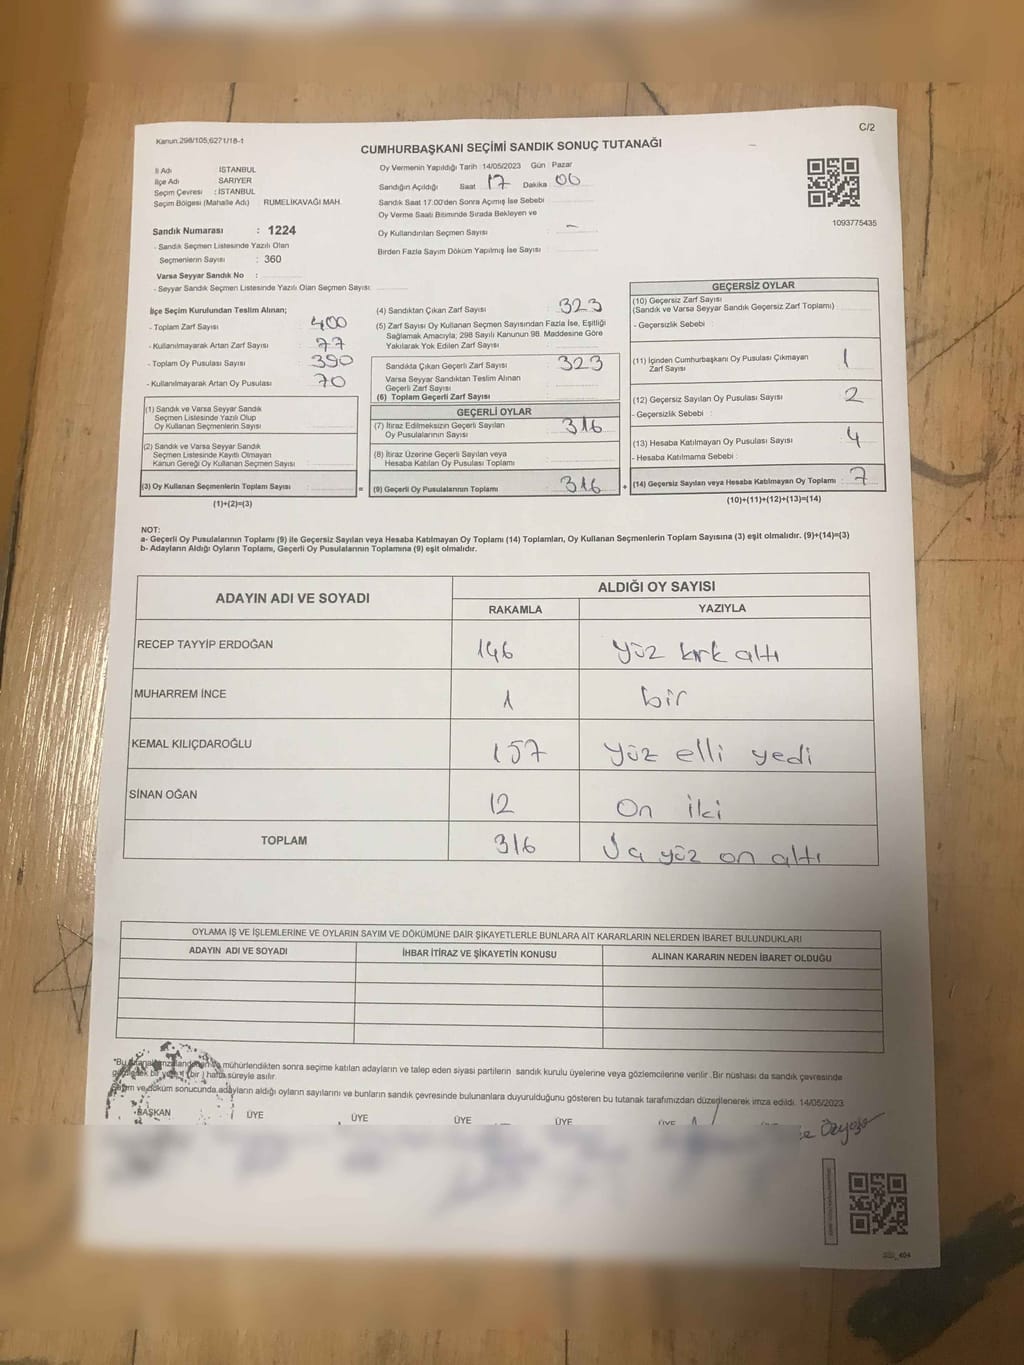 Kanun.298/105,6271/18-1
C/2
CUMHURBAŞKANI SEÇİMİ SANDIK SONUÇ TUTANAĞI
İl Adı İSTANBUL
İlçe Adı SARIYER
Seçim Çevresi : İSTANBUL
Seçim Bölgesi (Mahalle Adı) RUMELİKAVAĞI MAH.
Oy Vermenin Yapıldığı Tarih 14/05/2023 Gün Pazar
Sandığın Açıldığı Saat 17 Dakika 00
Sandık Saat 17.00'den Sonra Açımış İse Sebebi
Oy Verme Saati Bitiminde Sırada Bekleyen ve
Oy Kullandırılan Seçmen Sayısı : –
Birden Fazla Sayım Döküm Yapılmış İse Sayısı :
1093775435
Sandık Numarası : 1224
- Sandık Seçmen Listesinde Yazılı Olan
Seçmenlerin Sayısı : 360
Varsa Seyyar Sandık No :
- Seyyar Sandık Seçmen Listesinde Yazılı Olan Seçmen Sayısı:
İlçe Seçim Kurulundan Teslim Alınan;
- Toplam Zarf Sayısı : 400
- Kullanılmayarak Artan Zarf Sayısı : 77
- Toplam Oy Pusulası Sayısı : 390
- Kullanılmayarak Artan Oy Pusulası : 70
(1) Sandık ve Varsa Seyyar Sandık
Seçmen Listesinde Yazılı Olup
Oy Kullanan Seçmenlerin Sayısı :
(2) Sandık ve Varsa Seyyar Sandık
Seçmen Listesinde Kayıtlı Olmayan
Kanun Gereği Oy Kullanan Seçmen Sayısı :
(3) Oy Kullanan Seçmenlerin Toplam Sayısı :
(1)+(2)=(3)
=
(4) Sandıktan Çıkan Zarf Sayısı : 323
(5) Zarf Sayısı Oy Kullanan Seçmen Sayısından Fazla İse, Eşitliği
Sağlamak Amacıyla; 298 Sayılı Kanunun 98. Maddesine Göre
Yakılarak Yok Edilen Zarf Sayısı :
Sandıkta Çıkan Geçerli Zarf Sayısı : 323
Varsa Seyyar Sandıktan Teslim Alınan
Geçerli Zarf Sayısı :
(6) Toplam Geçerli Zarf Sayısı :
GEÇERLİ OYLAR
(7) İtiraz Edilmeksizin Geçerli Sayılan
Oy Pusulalarının Sayısı : 316
(8) İtiraz Üzerine Geçerli Sayılan veya
Hesaba Katılan Oy Pusulası Toplamı :
(9) Geçerli Oy Pusulalarının Toplamı : 316
+
GEÇERSİZ OYLAR
(10) Geçersiz Zarf Sayısı
(Sandık ve Varsa Seyyar Sandık Geçersiz Zarf Toplamı) :
- Geçersizlik Sebebi :
(11) İçinden Cumhurbaşkanı Oy Pusulası Çıkmayan
Zarf Sayısı : 1
(12) Geçersiz Sayılan Oy Pusulası Sayısı : 2
- Geçersizlik Sebebi :
(13) Hesaba Katılmayan Oy Pusulası Sayısı : 4
- Hesaba Katılmama Sebebi :
(14) Geçersiz Sayılan veya Hesaba Katılmayan Oy Toplamı : 7
(10)+(11)+(12)+(13)=(14)
NOT:
a- Geçerli Oy Pusulalarının Toplamı (9) ile Geçersiz Sayılan veya Hesaba Katılmayan Oy Toplamı (14) Toplamları, Oy Kullanan Seçmenlerin Toplam Sayısına (3) eşit olmalıdır. (9)+(14)=(3)
b- Adayların Aldığı Oyların Toplamı, Geçerli Oy Pusulalarının Toplamına (9) eşit olmalıdır.
ADAYIN ADI VE SOYADI
ALDIĞI OY SAYISI
RAKAMLA YAZIYLA
RECEP TAYYİP ERDOĞAN 146 Yüz kırk altı
MUHARREM İNCE 1 bir
KEMAL KILIÇDAROĞLU 157 Yüz elli yedi
SİNAN OĞAN 12 On iki
TOPLAM 316 Üç yüz on altı
OYLAMA İŞ VE İŞLEMLERİNE VE OYLARIN SAYIM VE DÖKÜMÜNE DAİR ŞİKAYETLERLE BUNLARA AİT KARARLARIN NELERDEN İBARET BULUNDUKLARI
ADAYIN ADI VE SOYADI İHBAR İTİRAZ VE ŞİKAYETİN KONUSU ALINAN KARARIN NEDEN İBARET OLDUĞU
mühürlendikten sonra seçime katılan adayların ve talep eden siyasi partilerin sandık kurulu üyelerine veya gözlemcilerine verilir. Bir nüshası da sandık çevresinde
(bir) hafta süreyle asılır.
ve döküm sonucunda adayların aldığı oyların sayılarını ve bunların sandık çevresinde bulunanlara duyurulduğunu gösteren bu tutanak tarafımızdan düzenlenerek imza edildi. 14/05/2023
BAŞKAN ÜYE ÜYE ÜYE ÜYE ÜYE